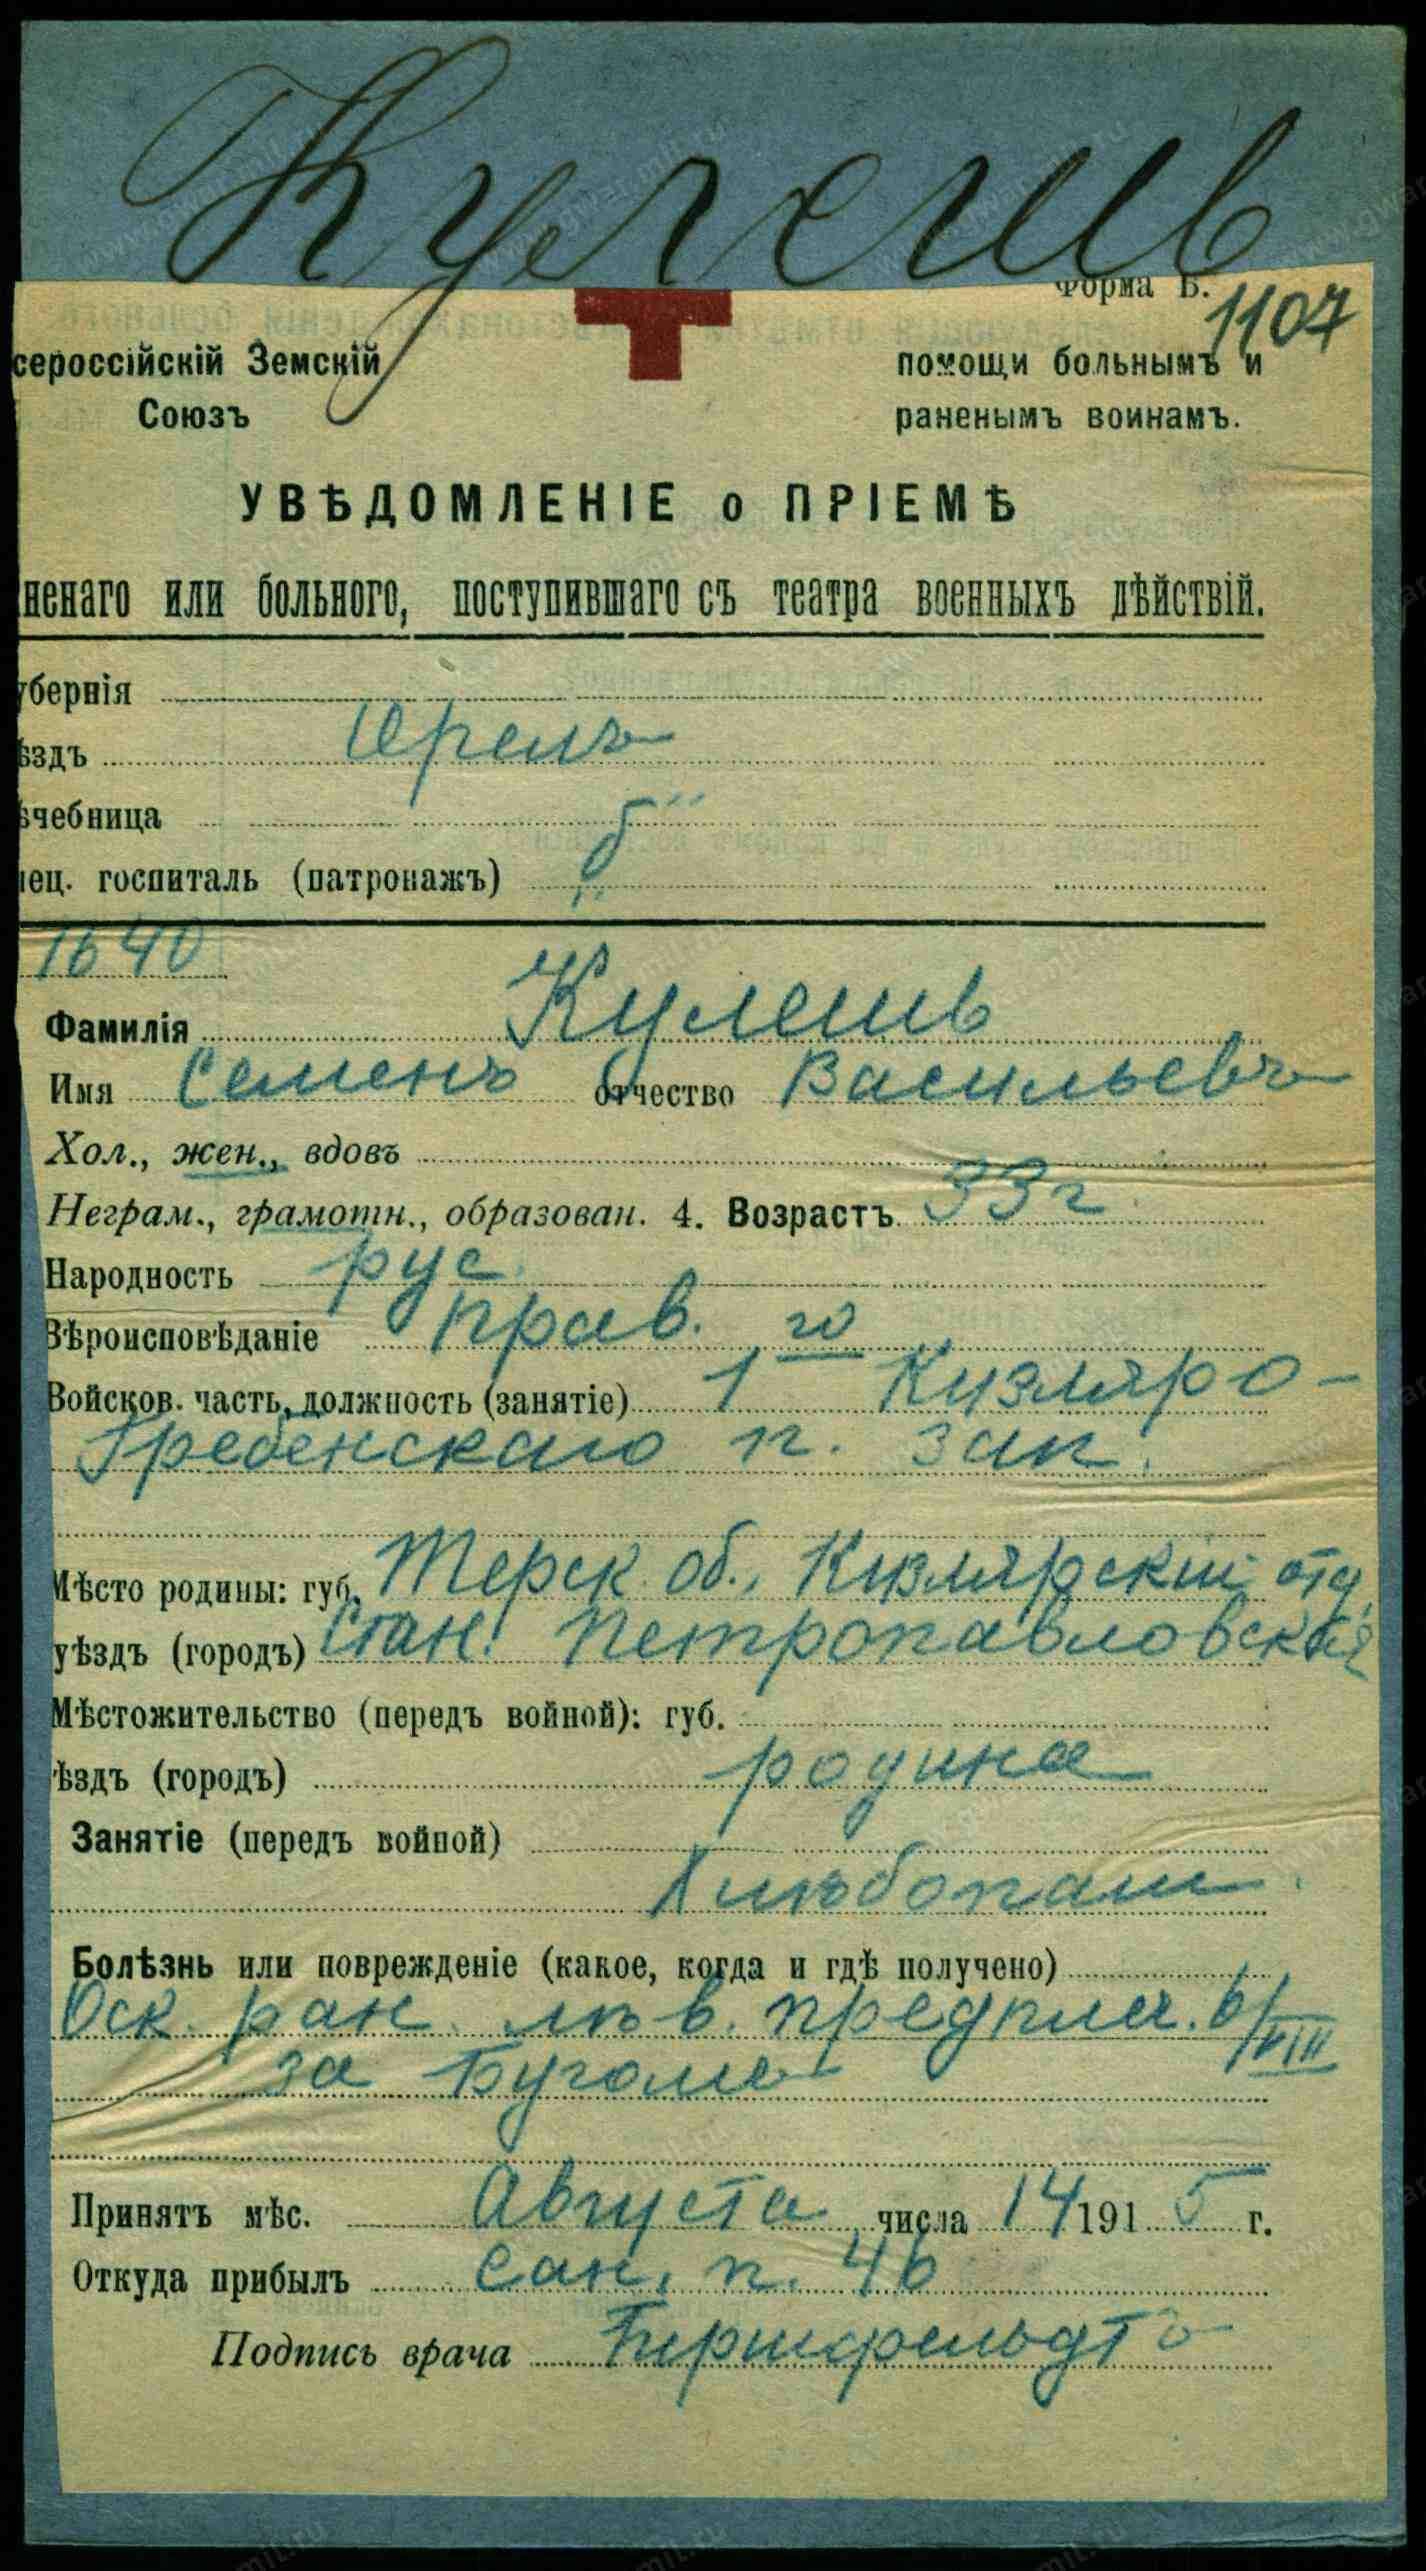 Кулешь
Форма Б.
1107
сероссійскій Земскій
Союзъ
помощи больнымъ и
раненымъ воинамъ.
УВѢДОМЛЕНІЕ о ПРІЕМѢ
ненаго или больного, поступившаго съ театра военныхъ дѣйствій.
убернія
ѣздъ Орелъ
ѣчебница
ец. госпиталь (патронажъ) б
1640
Фамилія Кулешь
Имя Семенъ отчество Васильевъ
Хол., жен., вдовъ
Неграм., грамотн., образован. 4. Возрастъ 33 г.
Народность рус.
Вѣроисповѣданіе прав.
Войсков. часть, должность (занятіе) 1го Кизляро-
Гребенскаго п. зап.
Мѣсто родины: губ. Терск. об., Кизлярскій отд.
уѣздъ (городъ) Стан. Петропавловская
Мѣстожительство (передъ войной): губ.
ѣздъ (городъ) родина
Занятіе (передъ войной)
Хлѣбопаш.
Болѣзнь или поврежденіе (какое, когда и гдѣ получено)
Оск. ран. лѣв. предплеч. 6/VIII
за
Принятъ мѣс. Августа числа 14 1915 г.
Откуда прибылъ Сан. п. 46
Подпись врача